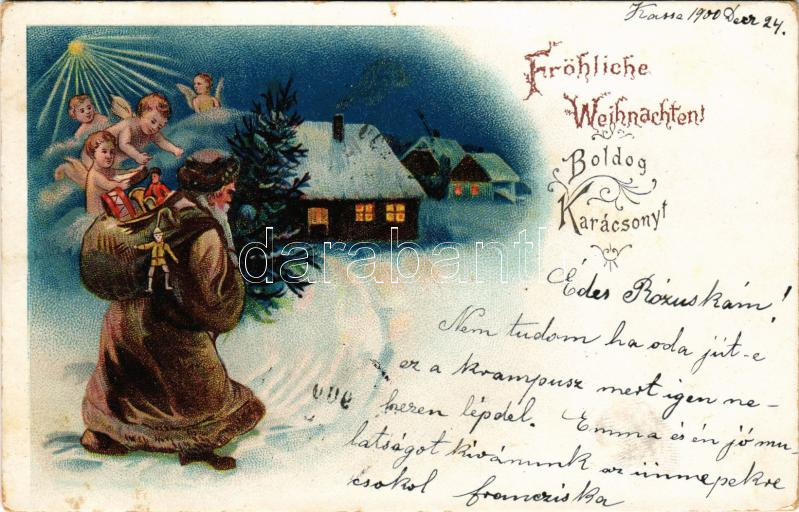 Kassa 1900 Decz 24.
Fröhliche
Weihnachten!
Boldog
Karácsonyt
darabanth
Édes Rózuskám!
Nem tudom ha oda jút-e
ez a krampusz mert igen ne-
hezen lépdel. Emma és én jó mu-
latságot kivánunk az ünnepekre
csokol francziska